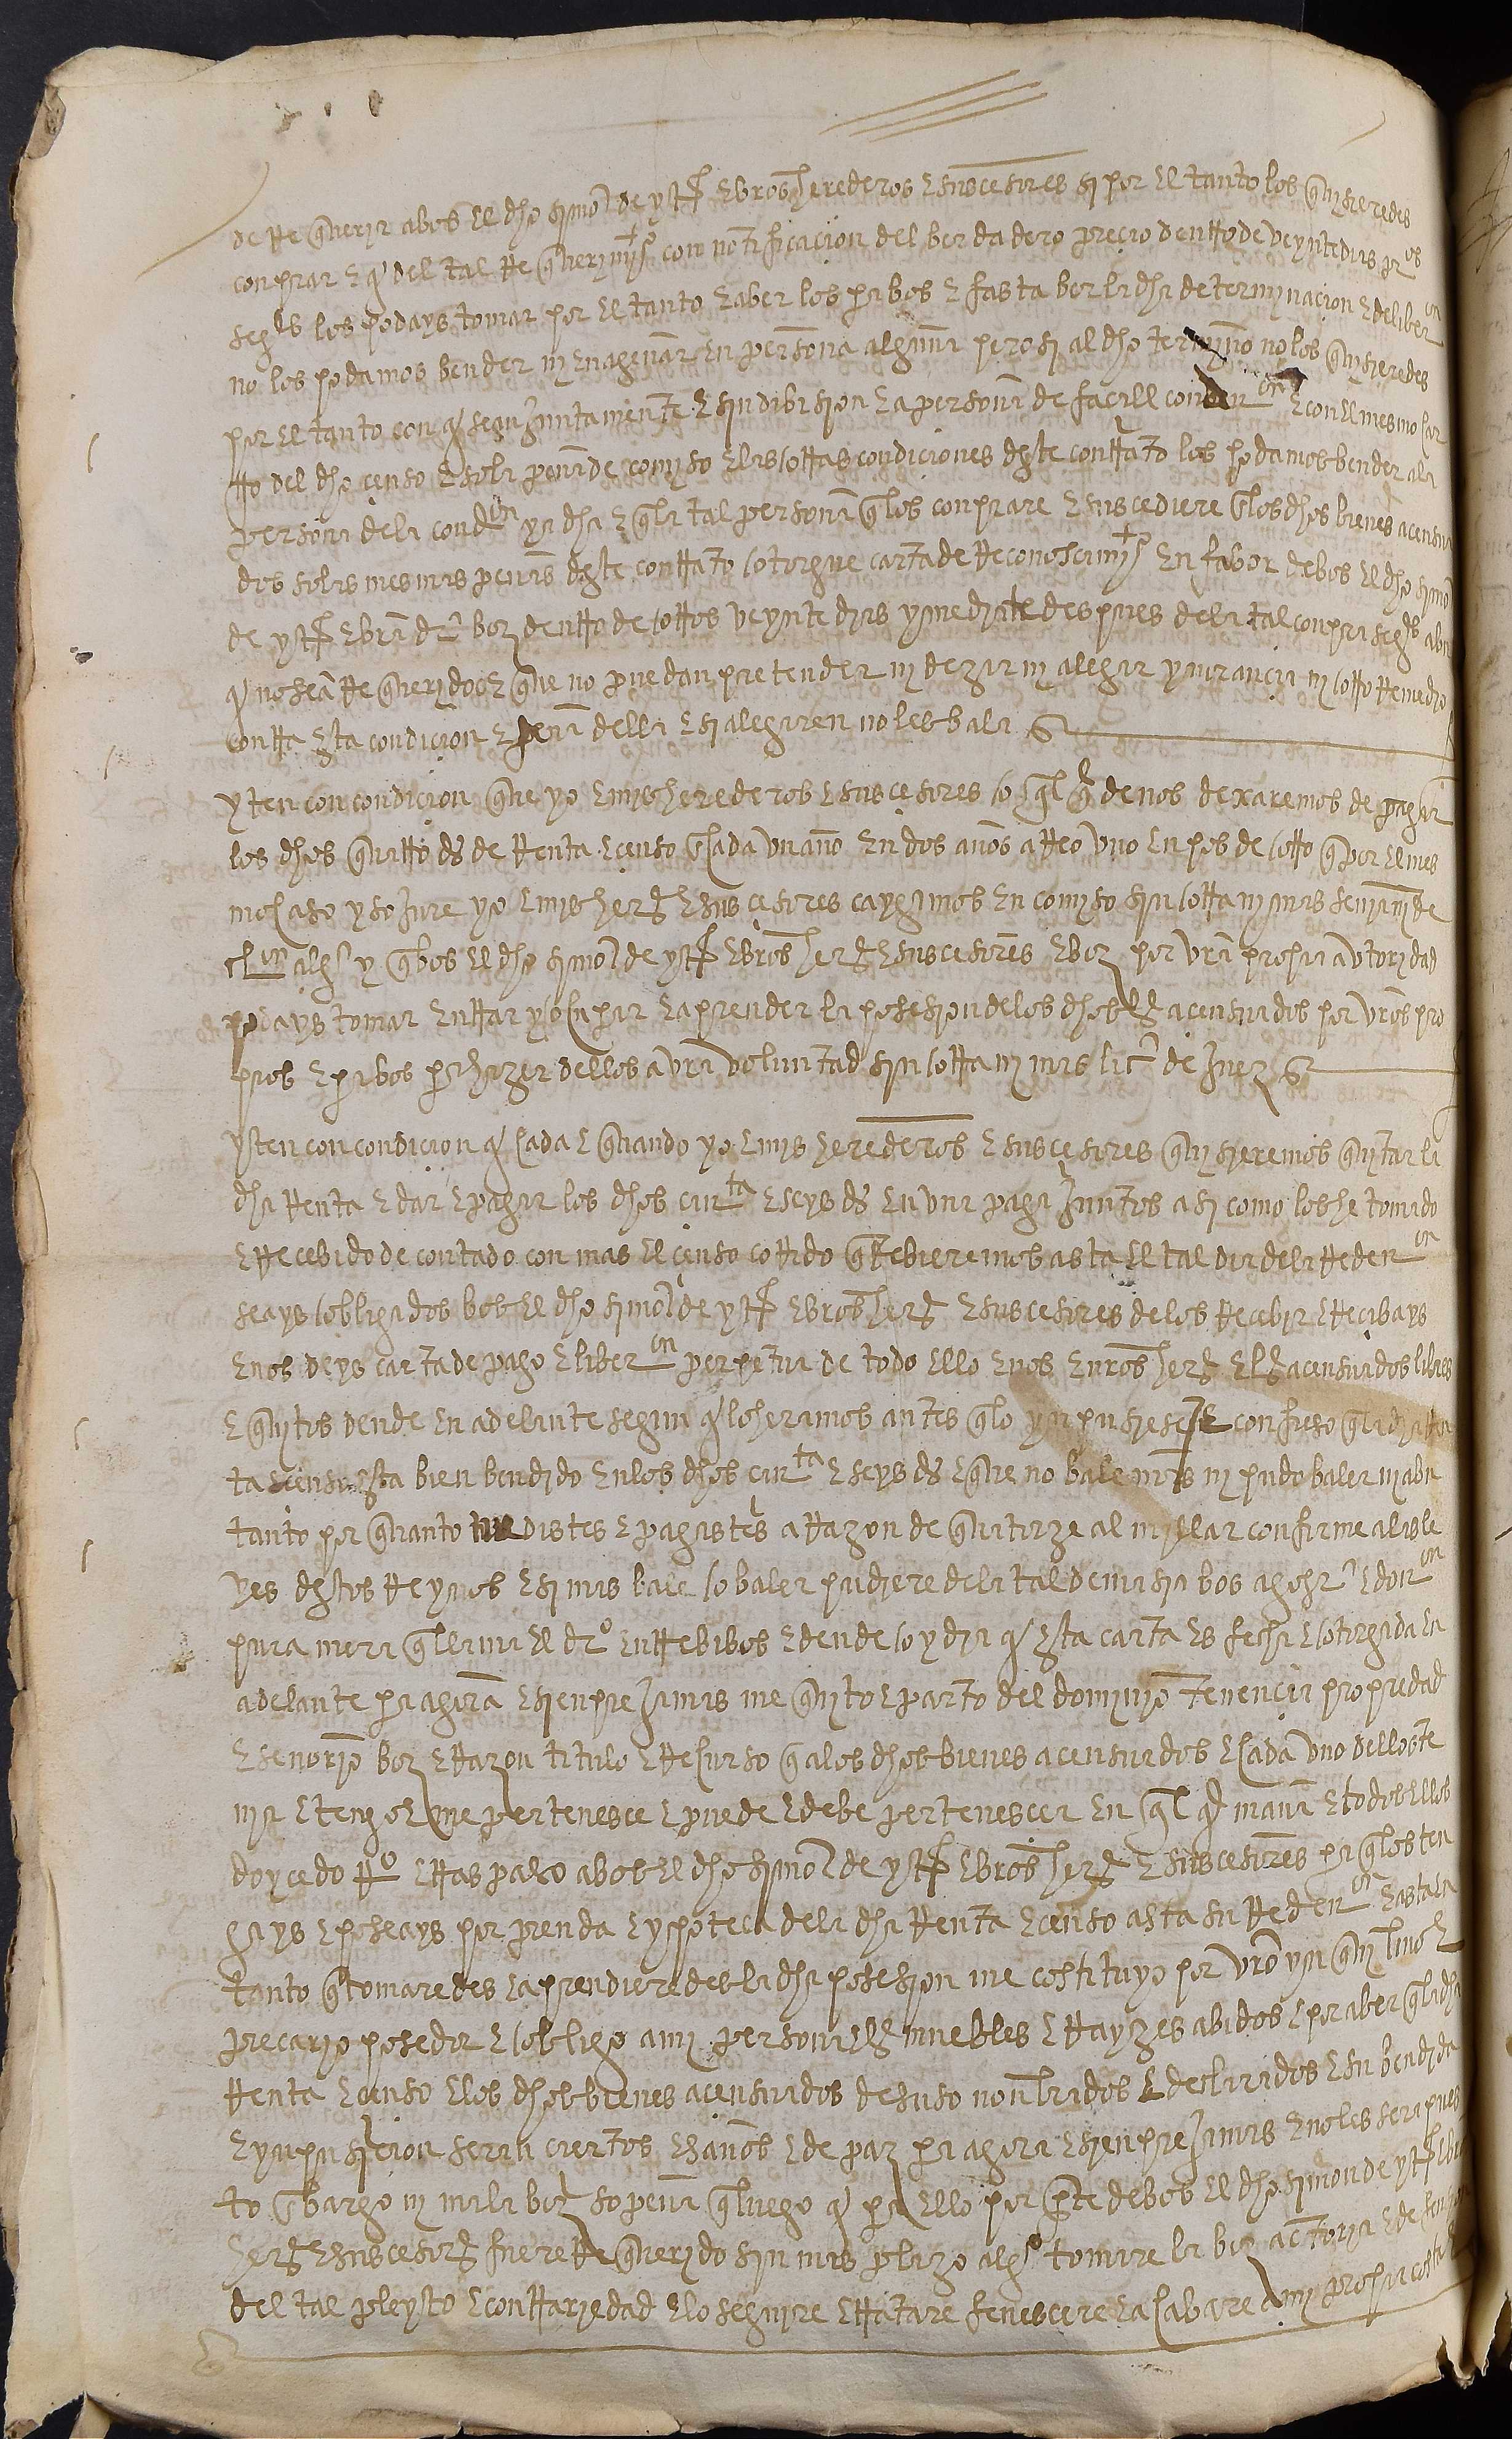 de rrequeryr a bos el dho simon de yst E bros herederos E suscesores si por el tanto los quysieredes
conprar E q del tal rrequerimyº con notificacion del berdadero precio dentro de veynte dias pros
segˢ los podays tomar por el tanto E aber los pa bos E fasta ber la dha determynacion E deliberon
no los podamos bender ny enagenar en persona alguna pero si al dho termyno no los quysieredes
por el tanto con q sean juntamente E sin dibision E a persona de facill con E con el mesmo car
go del dho censo E so la pena de comyso E las otras condiciones deste contrato los podamos bender a la
persona de la condon ya dha E q la tal persona q los conprare E suscediere los dhos bienes acensua
dos so las mesmas penas deste contrato otorgue carta de rreconoscimyº en fabor de bos el dho simon
de yst E bra boz dentro de otros veynte dias ymediate despues de la tal conpra segˢ abn
q no sean rrequeridos E que no puedan pretender ny dezir ny alegar ynorancia ny otro rremedio
contra esta condicion E pena della E si alegaren no les bala
yten con condicion que yo E mys herederos E suscesores o ql q de nos dexaremos de pagar
los dhos quatro dˢ de rrenta E censo cada vn año en dos años arreo vno en pos de otro q por el mes
mo caso yso jure yo E mys herˢ E suscesores caygamos en comyso sin otra ny mas sentenª ny de
clon algª y q bos el dho simon de yst E bros herˢ E suscesores E boz por vra propia avtorydad
podays tomar entrar y ocupar E aprender la posesion de los dhos bˢ acensuados por vros pro
pios E pa bos pa hazer dellos a vra voluntad sin otra ny mas licª de juez
yten con condicion q cada E quando yo E mys herederos E suscesores quysieremos quytar la
dha rrenta E dar E pagar los dhos cinta E seys dˢ en vna paga juntos asi como los he tomado
E rrecebido de contado con mas el censo corrido q debieremos asta el tal dia de la rredenon
seays obligados bos el dho simon de yst E bros herˢ E suscesores de los rrecebir E rrecibays
E nos deys carta de pago E liberon perpetua de todo ello E nos E nros herˢ E bˢ acensuados libres
E quytos dende en adelante segun q lo heramos antes q lo ynpusiese E confieso q la dha rren
ta E censo esta bien bendido en los dhos cinta E seys dˢ E que no bale mas ny pudo baler ny abn
tanto por quanto me distes E pagastes a rrazon de quatorze al myllar confirme a las le
yes destos rreynos E si mas bale o baler pudiere de la tal demasia bos ago E donon
pura mera q llama el drº entrebibos E dende oy dia q esta carta es fecha E otorgada en
adelante pa agora E sienpre jamas me quyto E parto del domynyo tenencia propiedad
E senorio boz E rrazon titulo E rrecurso q a los dhos bienes acensuados E cada vno dellos te
nya E tengo E me pertenesce E puede E debe pertenescer en ql qr manera E todo ello
doy cedo rrº E traspaso a bos el dho simon de yst E bros herˢ E suscesores pa q los ten
gays E poseays por prenda E ypoteca de la dha rrenta E censo asta su rredenon E asta en
tanto q tomaredes E aprendieredes la dha posesion me costituyo por vro ynquylino E
precaryo posedor E obligo a my persona E bˢ muebles E rrayzes abidos E por aber q la dha
rrenta E censo E los dhos bienes acensuados de suso nonbrados E declarados E su bendida
E ynpusicion seran ciertos E sanos E de paz pa agora E sienpre jamas E no les sera pues
to enbargo ny mala boz so pena q luego q pa ello por pte de bos el dho simon de yst E bros
herˢ E suscesores fuere rrequerydo sin mas plazo algº tomare la boz actorya E defension
del tal pleyto E contrariedad E lo seguyre E tratare fenescere E acabare a my propia costa